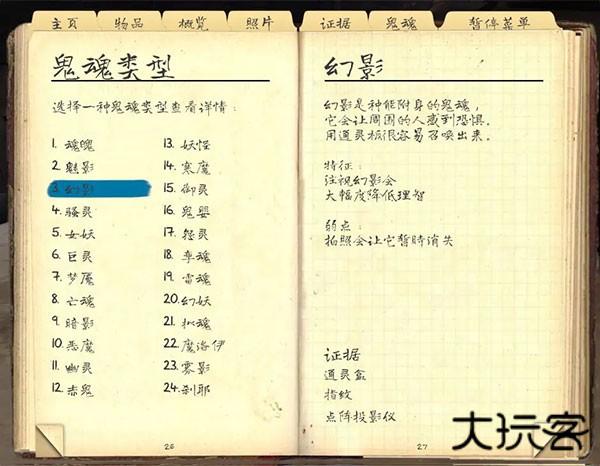 主页 物品 概览 照片 证据 鬼魂 暂停菜单
鬼魂类型
选择一种鬼魂类型查看详情：
1. 魂魄
2. 魅影
3. 幻影
4. 骚灵
5. 女妖
6. 巨灵
7. 梦魇
8. 亡魂
9. 暗影
10. 恶魔
11. 幽灵
12. 赤鬼
13. 妖怪
14. 寒魔
15. 御灵
16. 鬼婴
17. 怨灵
18. 孪魂
19. 雷魂
20. 幻妖
21. 拟魂
22. 魔洛伊
23. 雾影
24. 刹耶
26
幻影
幻影是种能附身的鬼魂，
它会让周围的人感到恐惧.
用通灵板很容易召唤出来.
特征：
注视幻影会
大幅度降低理智
弱点：
拍照会让它暂时消失
证据
通灵盒
指纹
点阵投影仪
27
大玩客